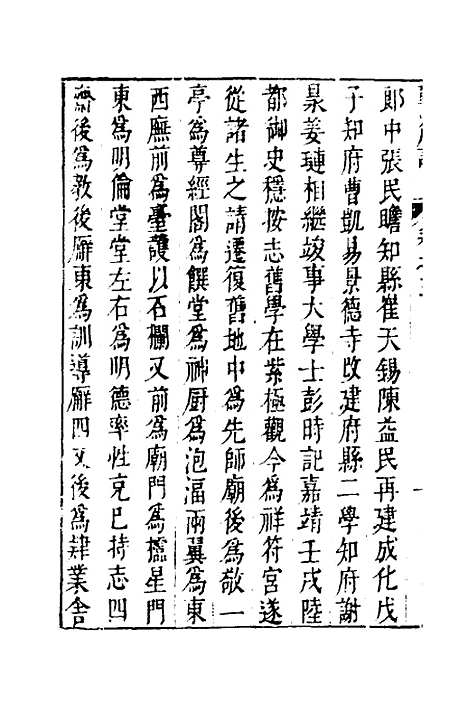 郎中張民瞻知縣崔天錫陳益民再建成化戊
子知府曹凱易景德寺改建府縣二學知府謝
杲姜璉相繼竣事大學士彭時記嘉靖壬戌陸
都御史穩按志舊學在紫極觀今為祥符宮遂
從諸生之請遷復舊地中為先師廟後為敬一
亭為尊經閣為饌堂為神厨為泡湢兩翼為東
西廡前為臺護以石欄又前為廟門為櫺星門
東為明倫堂堂左右為明德率性克巳持志四
齋後為教後廨東為訓導廨四又後為肄業舎